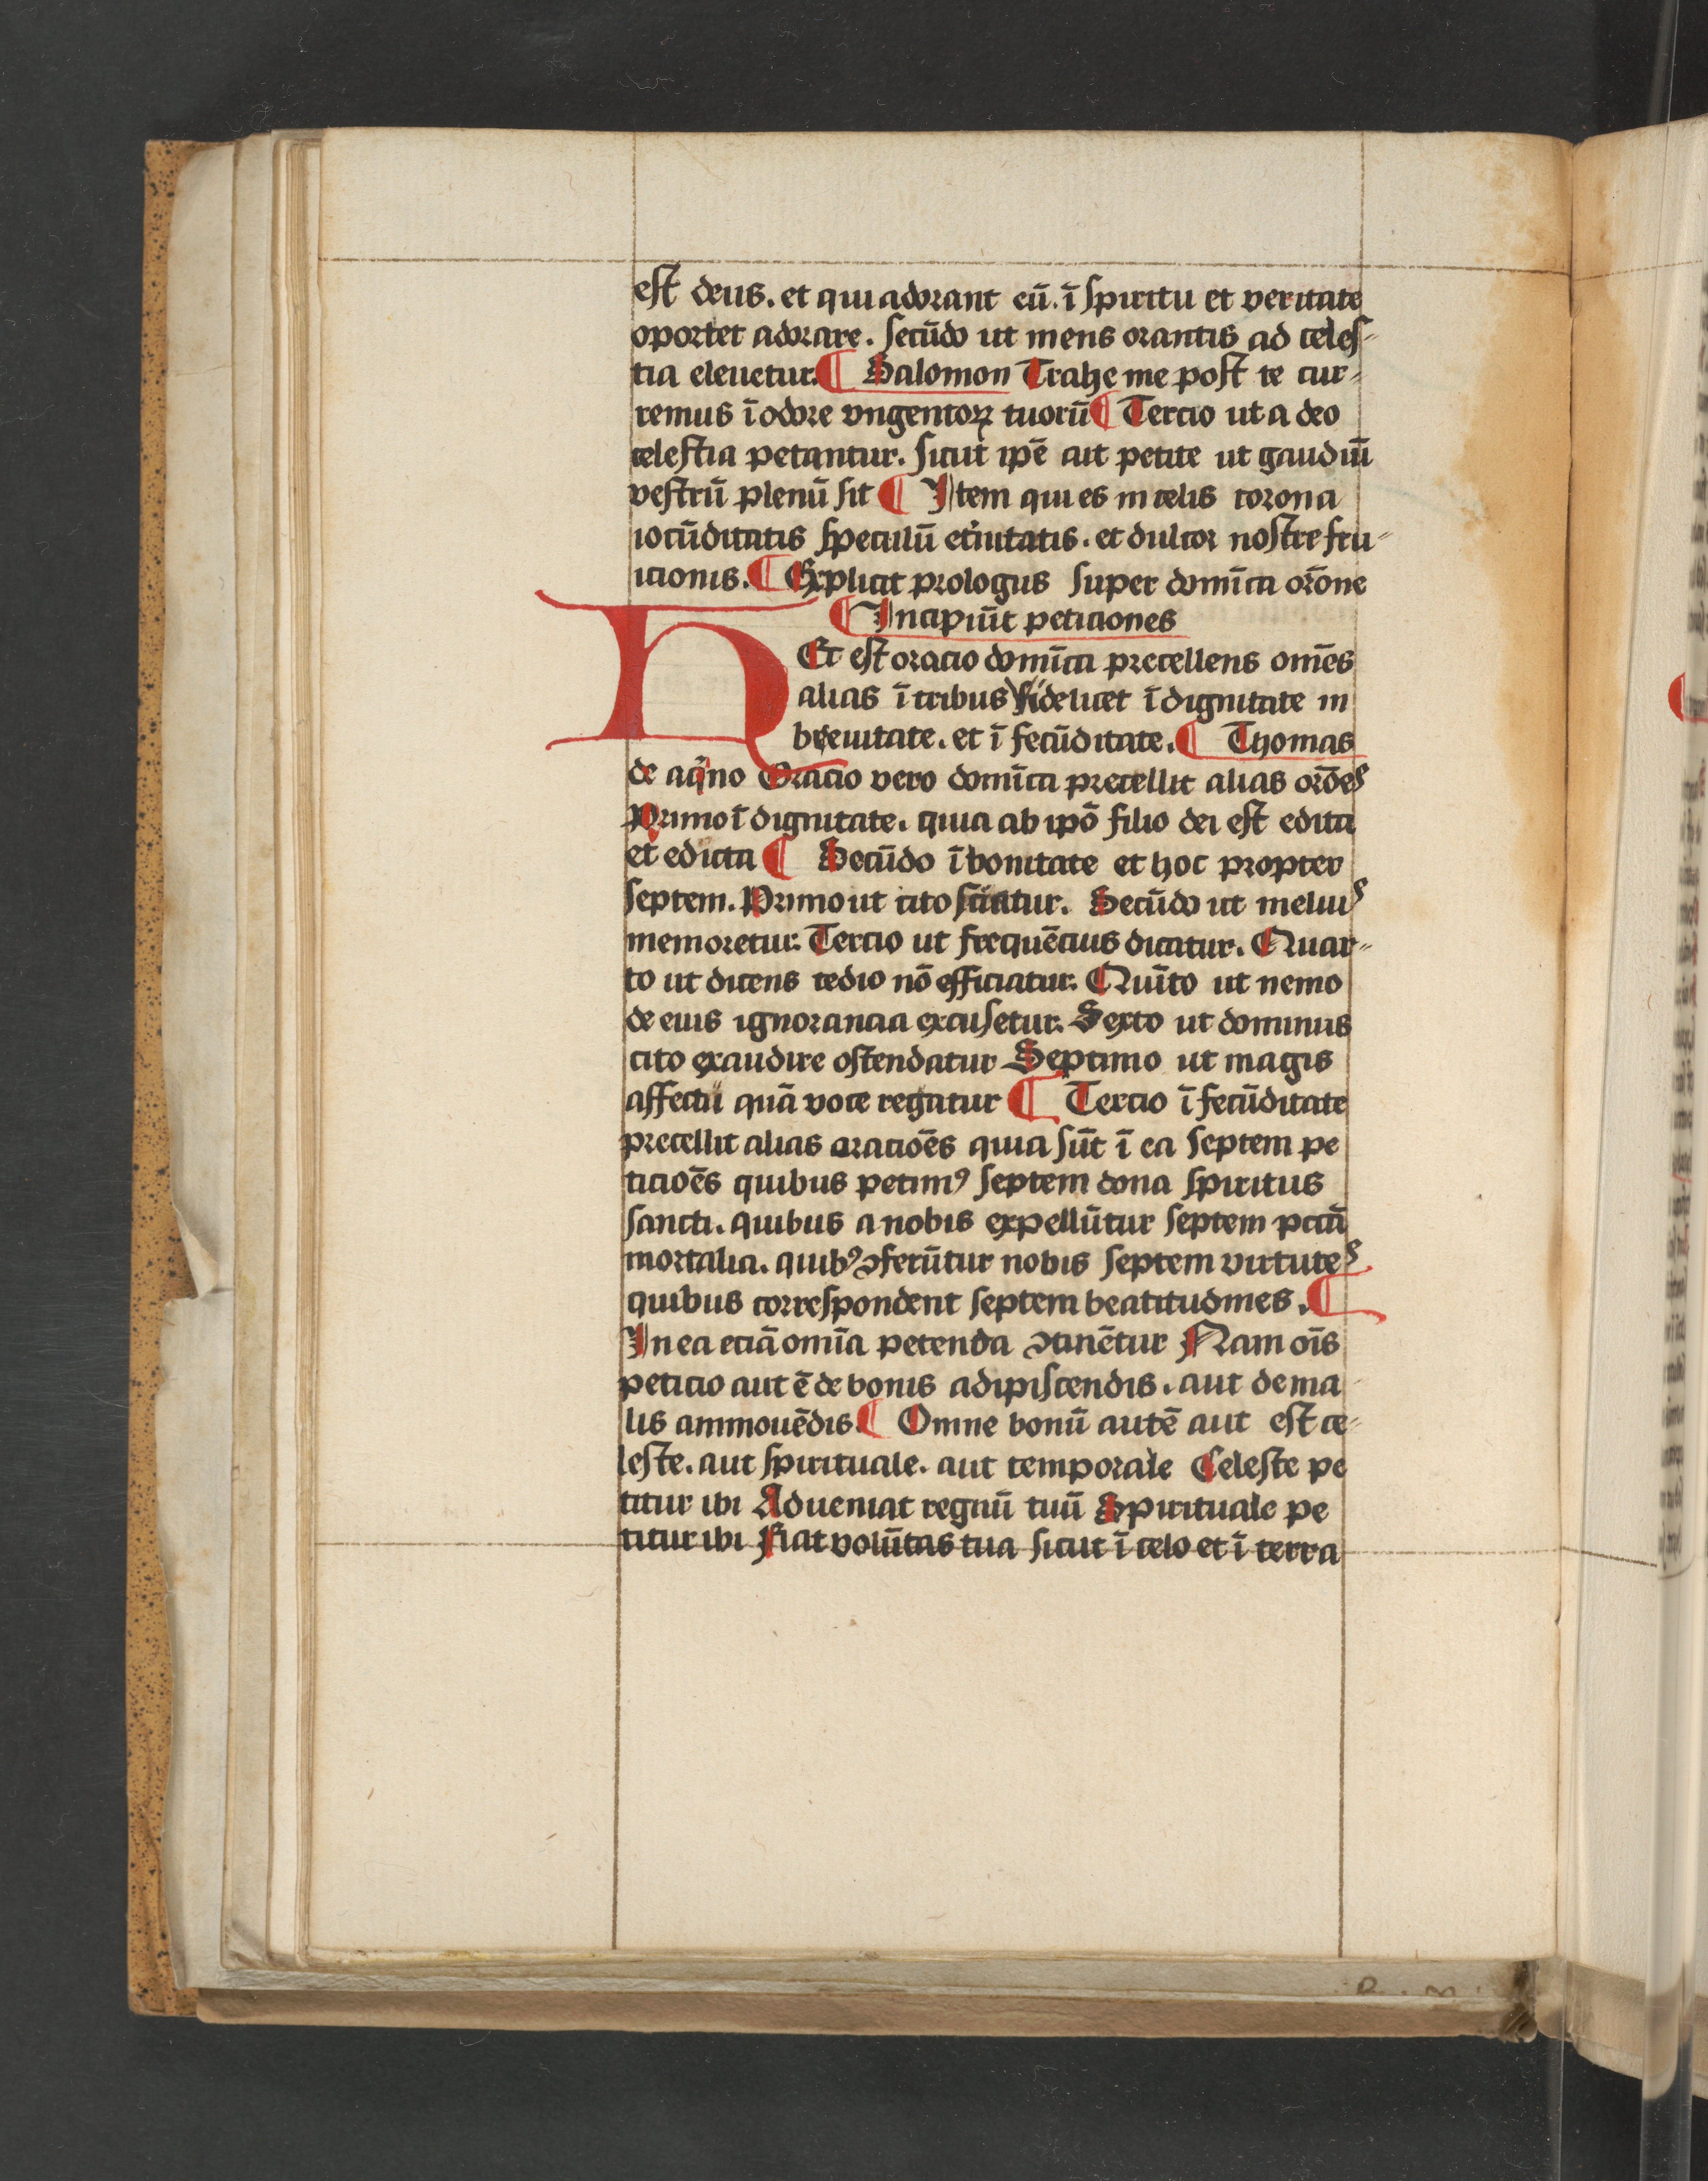 est deus. et qui adorant eū. ī spiritu et veritate
oportet adorare. secūdo ut mens orantis ad celes-
tia eleuetur. ¶ Salomon Trahe me post te cur-
remus ī odore vngentoꝝ tuorū ¶ Tercio ut a deo
celestia petantur. sicut ipē ait petite ut gaudiū
vestrū plenū sit ¶ Item qui es in celis corona
iocūditatis speculū et̓nitatis. et dulcor nostre fru-
icionis. ¶ Explicit prologus super domīca orōne
¶ Incipiūt peticiones
Hec est oracio domīca precellens omēs
alias ī tribus sidelicet ī dignitate in
breuitate. et ī fecūditate. ¶ Thomas
de aqͥno Oracio vero domīca precellit alias orōes
Primo ī dignitate. quia ab ipō filio dei est edita
et edicta ¶ Secūdo ī bonitate et hoc propter
septem. Primo ut cito sciatur. Secūdo ut melius
memoretur. Tercio ut frequēcius dicatur. Quar-
to ut dicens tedio nō efficiatur. Quīto ut nemo
de eius ignorancia excusetur. Sexto ut dominus
cito exaudire ostendatur Septimo ut magis
affectu quā voce regatur ¶ Tercio ī fecūditate
precellit alias oraciōēs quia sūt ī ea septem pe
ticiōēs quibus petimꝰ septem dona spiritus
sancti. quibus a nobis expellūtur septem pctā
mortalia. quibꝰ ↄferūtur nobis septem virtutes
quibus correspondent septem beatitudines. ¶
In ea eciā omīa petenda ↄtinētur Nam oīs
peticio aut ē de bonis adipiscendis. aut de ma-
lis ammouēdis. ¶ Omne bonū autē aut est ce-
leste. aut spirituale. aut temporale Celeste pe
titur ibi Adueniat regnū tuū Spirituale pe
titur ibi Fiat volūtas tua sicut ī celo et ī terra